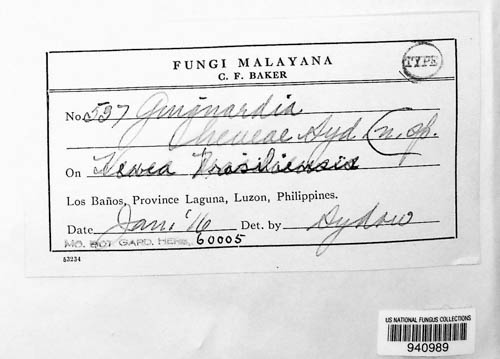 FUNGI MALAYANA
TYPE
C. F. BAKER
No. 537 Guignardia
heveae Syd. (n. sp.
On Hevea Brasiliensis
Los Baños, Province Laguna, Luzon, Philippines.
Date Jan. '16 Det. by Sydow
MO. BOT. GARD. HERB. 60005
53234
US NATIONAL FUNGUS COLLECTIONS
940989